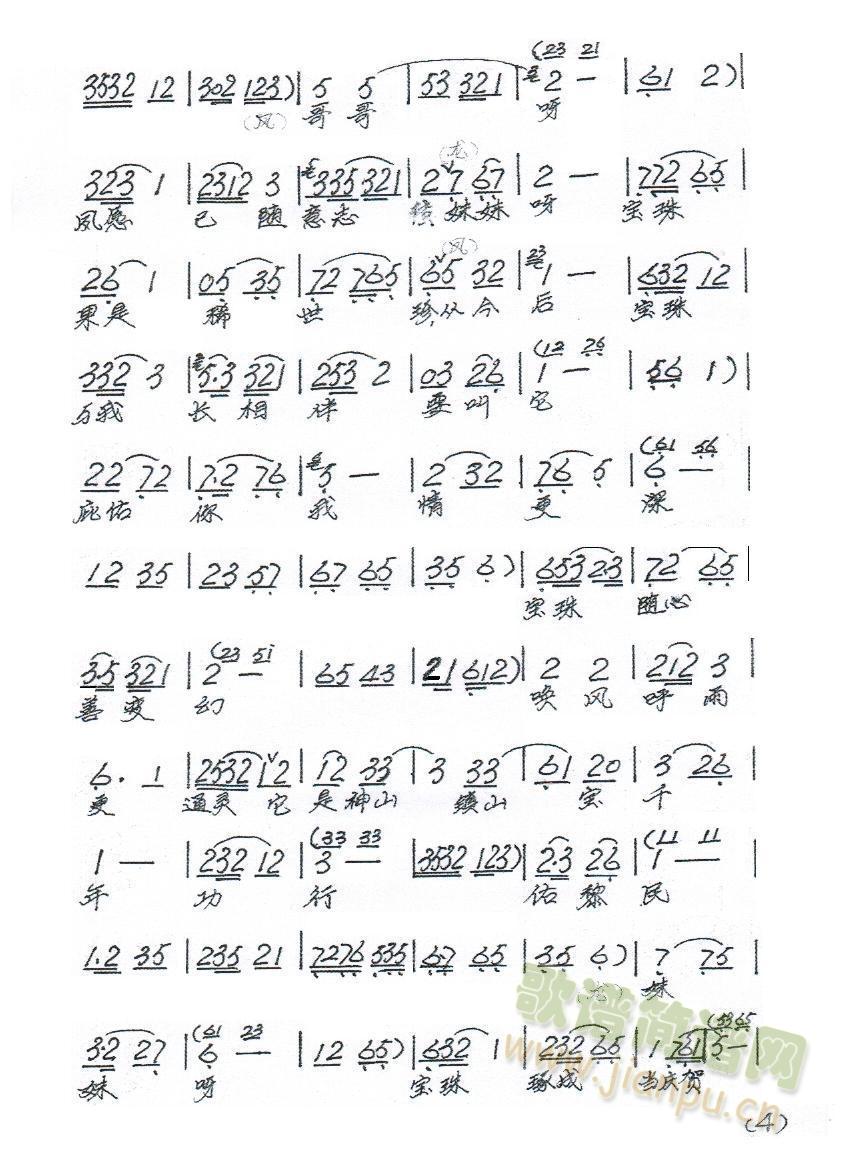 3532 12 | 302 123) | 5 5 | 53 321 | 2 — (23 21 | 61 2) |
(凤) 哥 哥 呀
323 1 | 2312 3 | 335 321 | 27 67 | 2 — | 772 65 |
(龙)
夙愿 已 随 意志 妹妹 呀 宝珠
26 1 | 05 35 | 72 765 | 65 32 | 1 — | 632 12 |
(凤)
果是 稀 世 珍,从今 后 宝珠
332 3 | 5·3 321 | 253 2 | 03 26 | 1 — (12 26 | 56 1) |
与我 长 相 伴 要叫 它
22 72 | 7·2 76 | 5 — | 2 32 | 76 5 | 6 — (61 56 |
庇佑 你 我 情 更 深
12 35 | 23 57 | 67 65 | 35 6) | 653 2·3 | 72 65 |
宝珠 随心
3·5 321 | 2 — (23 51 | 65 43 | 21 612) | 2 2 | 212 3 |
善变 幻 唤 风 呼 雨
6· 1 | 2532 12 | 12 33 | 3 33 | 61 20 | 3 26 |
更 通灵 它 是神山 镇山 宝 千
1 — | 232 12 | 3 — (33 33 | 3532 123) | 2·3 26 | 1 — (11 11 |
年 功 行 佑黎 民
1·2 35 | 235 21 | 7276 535 | 6·7 65 | 35 6) | 7 75 |
(龙) 妹
3·2 27 | 6 — (61 23 | 12 65) | 632 1 | 232 65 | 1 761 | 5 — (5365 |
妹 呀 宝珠 琢成 当庆贺
歌谱简谱网
www.jianpu.cn
(4)